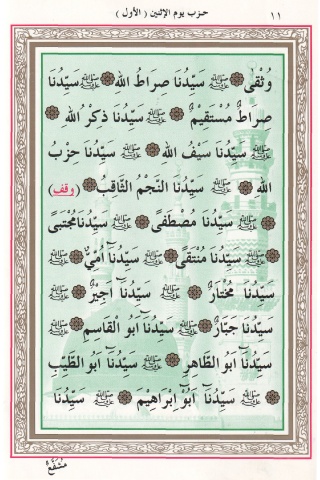 ١١ حزب يوم الإثنين ( الأول )
وُثْقَى ﷺ سَيِّدُنَا صِرَاطُ اللهِ ﷺ سَيِّدُنَا
صِرَاطٌ مُسْتَقِيمٌ ﷺ سَيِّدُنَا ذِكْرُ اللهِ
ﷺ سَيِّدُنَا سَيْفُ اللهِ ﷺ سَيِّدُنَا حِزْبُ
اللهِ ﷺ سَيِّدُنَا النَّجْمُ الثَّاقِبُ ( وقف )
ﷺ سَيِّدُنَا مُصْطَفَى ﷺ سَيِّدُنَا مُجْتَبَى
ﷺ سَيِّدُنَا مُنْتَقَى ﷺ سَيِّدُنَا أُمِّيٌّ ﷺ
سَيِّدُنَا مُخْتَارٌ ﷺ سَيِّدُنَا أَجِيْرٌ ﷺ
سَيِّدُنَا جَبَّارٌ ﷺ سَيِّدُنَا أَبُو الْقَاسِمِ ﷺ
سَيِّدُنَا أَبُو الطَّاهِرِ ﷺ سَيِّدُنَا أَبُو الطَّيِّبِ
ﷺ سَيِّدُنَا أَبُو إِبْرَاهِيْمَ ﷺ سَيِّدُنَا
مُشَفَّعٌ